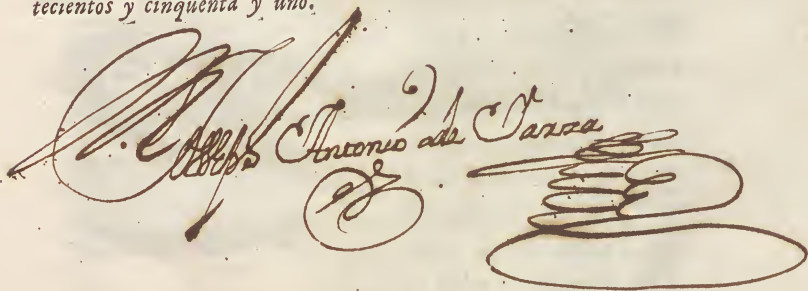 tecientos y cinquenta y uno.
Antonio de Yarza